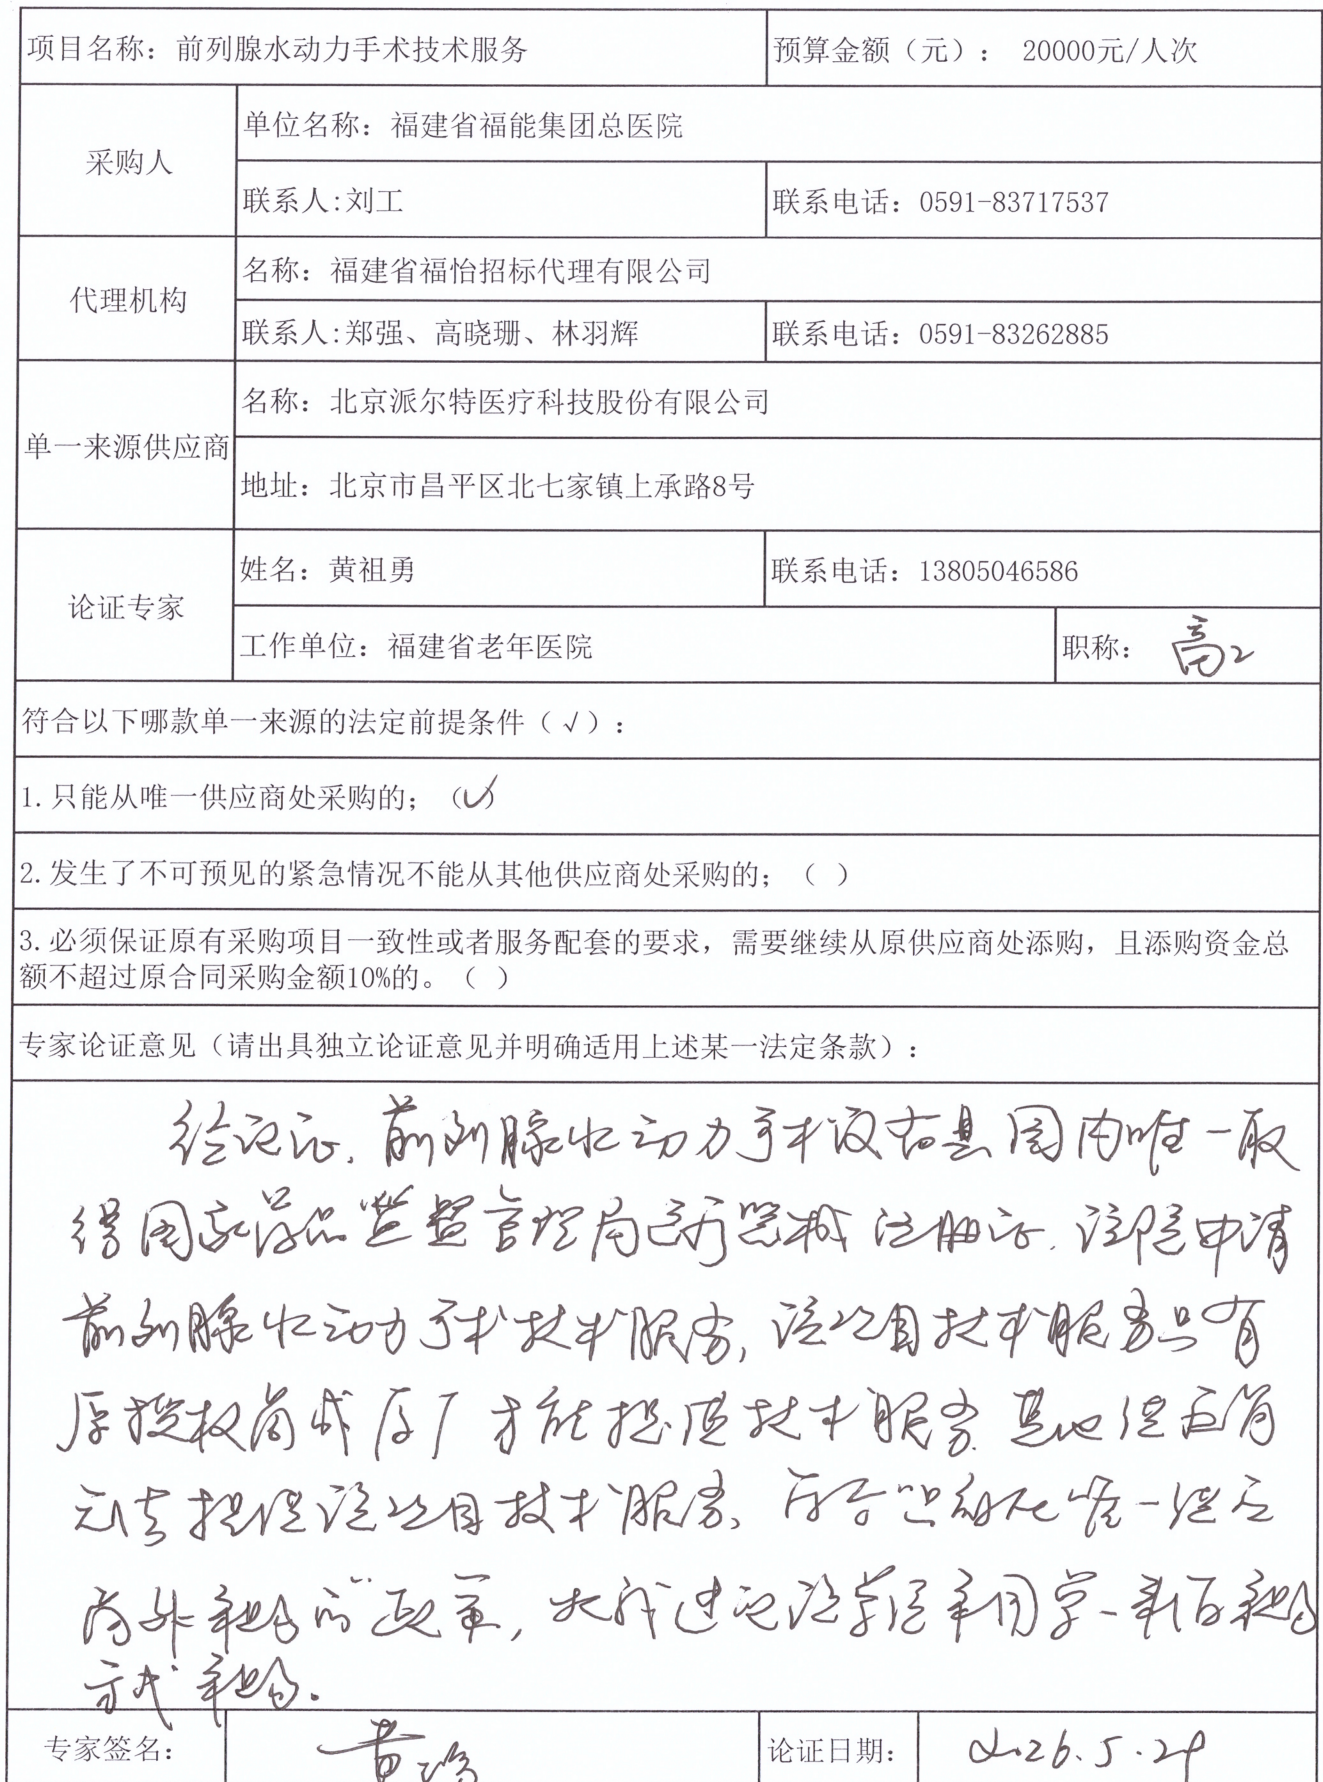 项目名称：前列腺水动力手术技术服务
预算金额（元）： 20000元/人次
采购人
单位名称：福建省福能集团总医院
联系人:刘工
联系电话：0591-83717537
代理机构
名称：福建省福怡招标代理有限公司
联系人:郑强、高晓珊、林羽辉
联系电话：0591-83262885
单一来源供应商
名称：北京派尔特医疗科技股份有限公司
地址：北京市昌平区北七家镇上承路8号
论证专家
姓名：黄祖勇
联系电话：13805046586
工作单位：福建省老年医院
职称： 高工
符合以下哪款单一来源的法定前提条件（√）：
1.只能从唯一供应商处采购的；（✓）
2.发生了不可预见的紧急情况不能从其他供应商处采购的；（ ）
3.必须保证原有采购项目一致性或者服务配套的要求，需要继续从原供应商处添购，且添购资金总
额不超过原合同采购金额10%的。（ ）
专家论证意见（请出具独立论证意见并明确适用上述某一法定条款）：
经论证，前列腺水动力手术设备是国内唯一取
得国家药品监督管理局医疗器械注册证，该院申请
前列腺水动力手术技术服务，该项目技术服务只有
原授权商或原厂才能提供技术服务，其他供应商
无法提供该项目技术服务、符合"只能从唯一供应
商处采购的"政策，采用单一来源采购
方式采购。
专家签名：
黄
论证日期：
2026.5.29